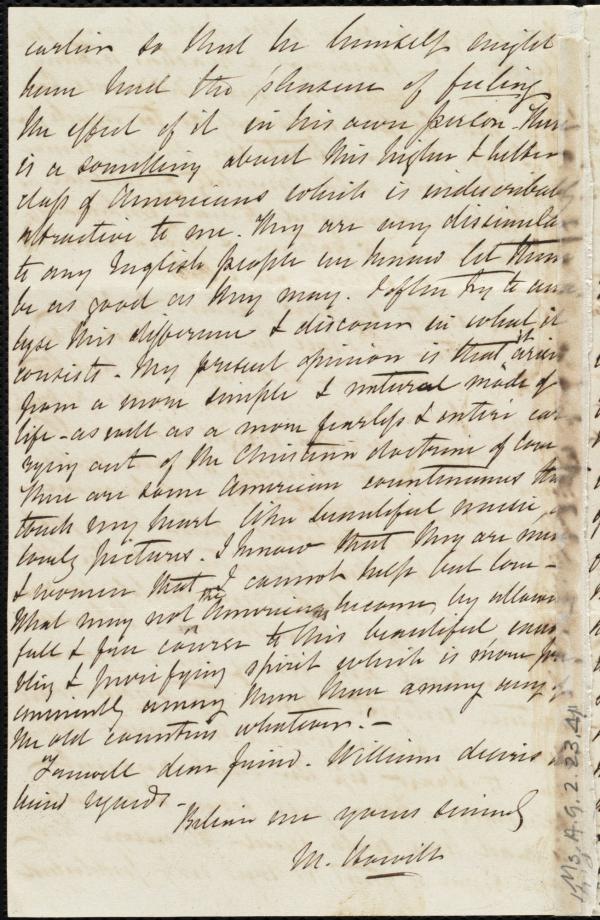 earlier so that he himself might
have had the pleasure of feeling
the effect of it in his own person. There
is a something about this higher & better
class of Americans which is indescribably
attractive to me. They are very dissimilar
to any English people we know let them
be as good as they may. I often try to ana
lyse this difference & discover in what it
consists. My present opinion is that it arises
from a more simple & natural mode of
life - as well as a more fearless & entire car
rying out of the Christian doctrine of love
There are some American countenances that
touch my heart like beautiful music, or
lovely pictures. I know that they are men
& women that I cannot help but love -
What may not the Americans become, by allowing
full & free course to this beautiful enno
bling & purifying spirit which is more pre
eminently among them than among any of
the old countries whatever! -
Farewell dear friend. William desires
kind regards -
Believe me yours sincerely
M. Howitt
Ms. A. 9. 2. 23. 4p